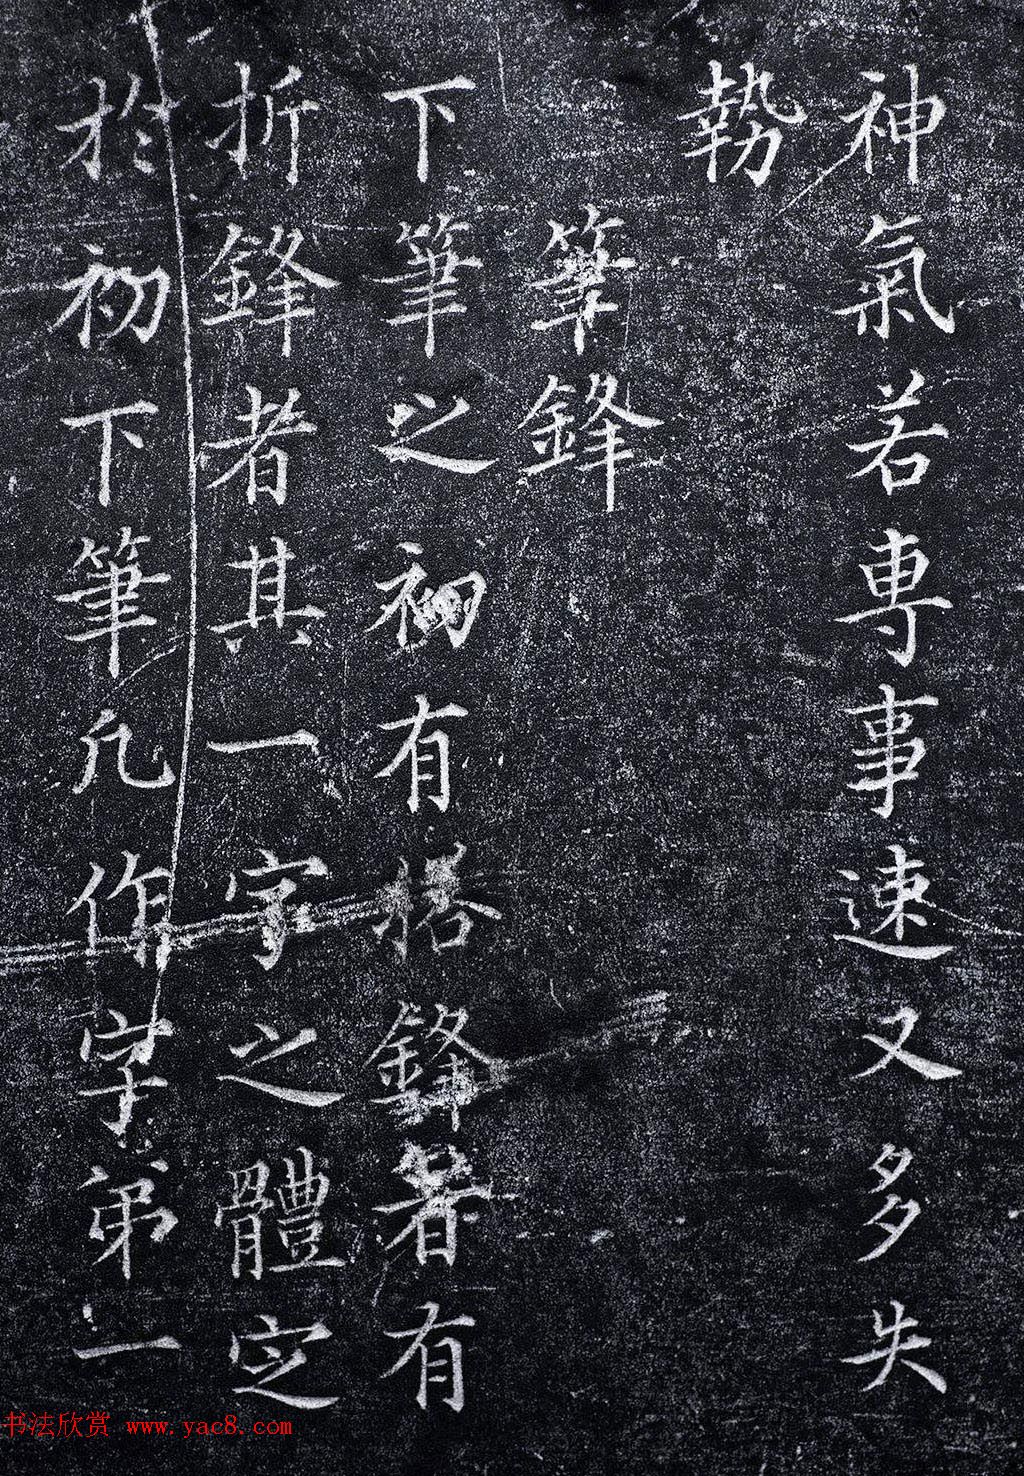 神氣若專事速又多失
勢
筆鋒
下筆之初有搭鋒者有
折鋒者其一字之體定
於初下筆凡作字第一
书法欣赏 www.yac8.com